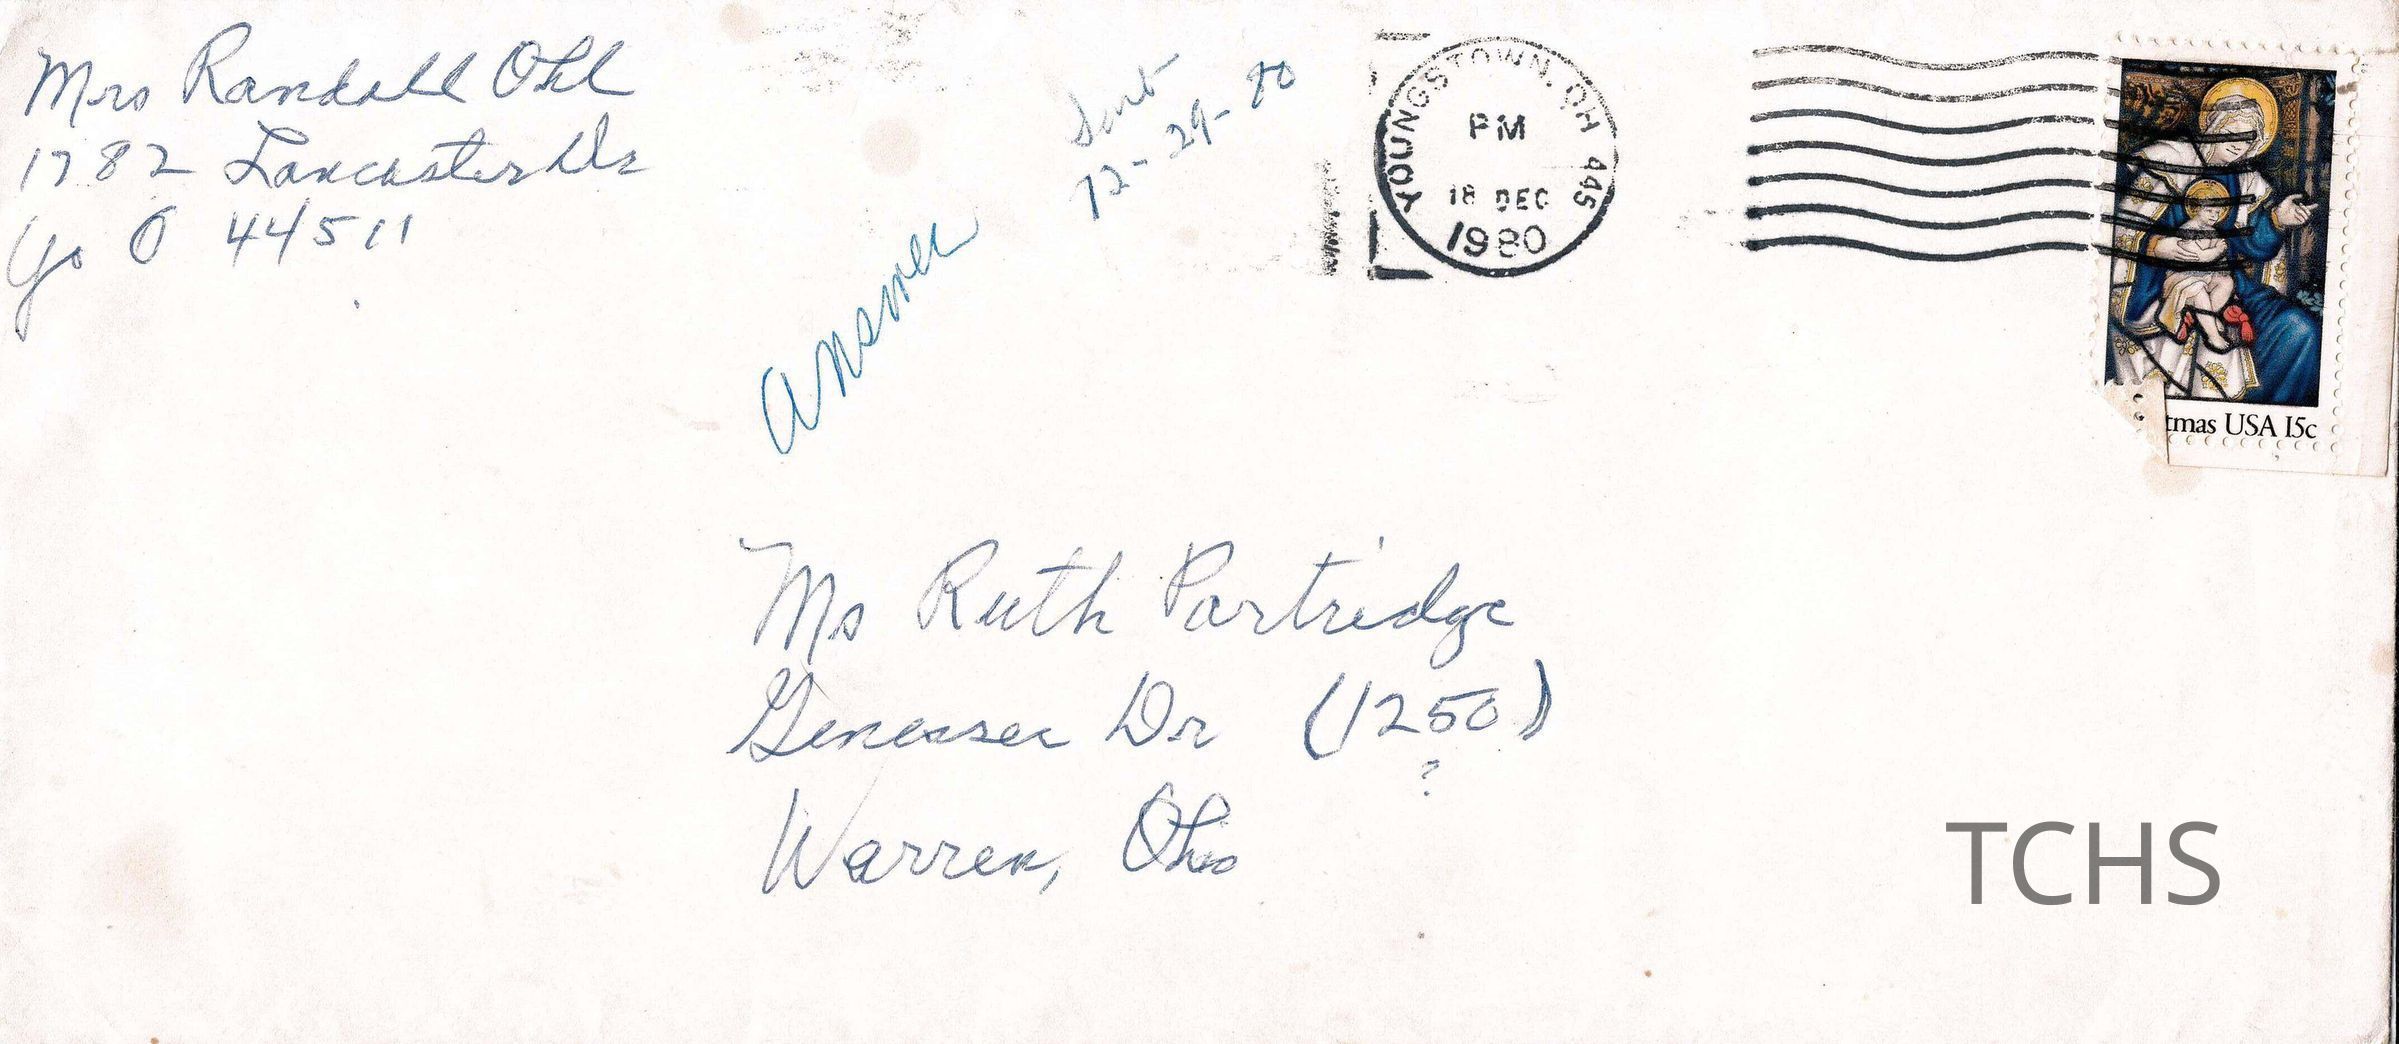 Mrs Randall Ohl
1782 Lancaster Dr
Yo O 44511
Answer
Sent
12-29-80
YOUNGSTOWN, OH 445
PM
18 DEC
1980
tmas USA 15c
Ms Ruth Partridge
Genessee Dr (1250)
?
Warren, Ohio
TCHS